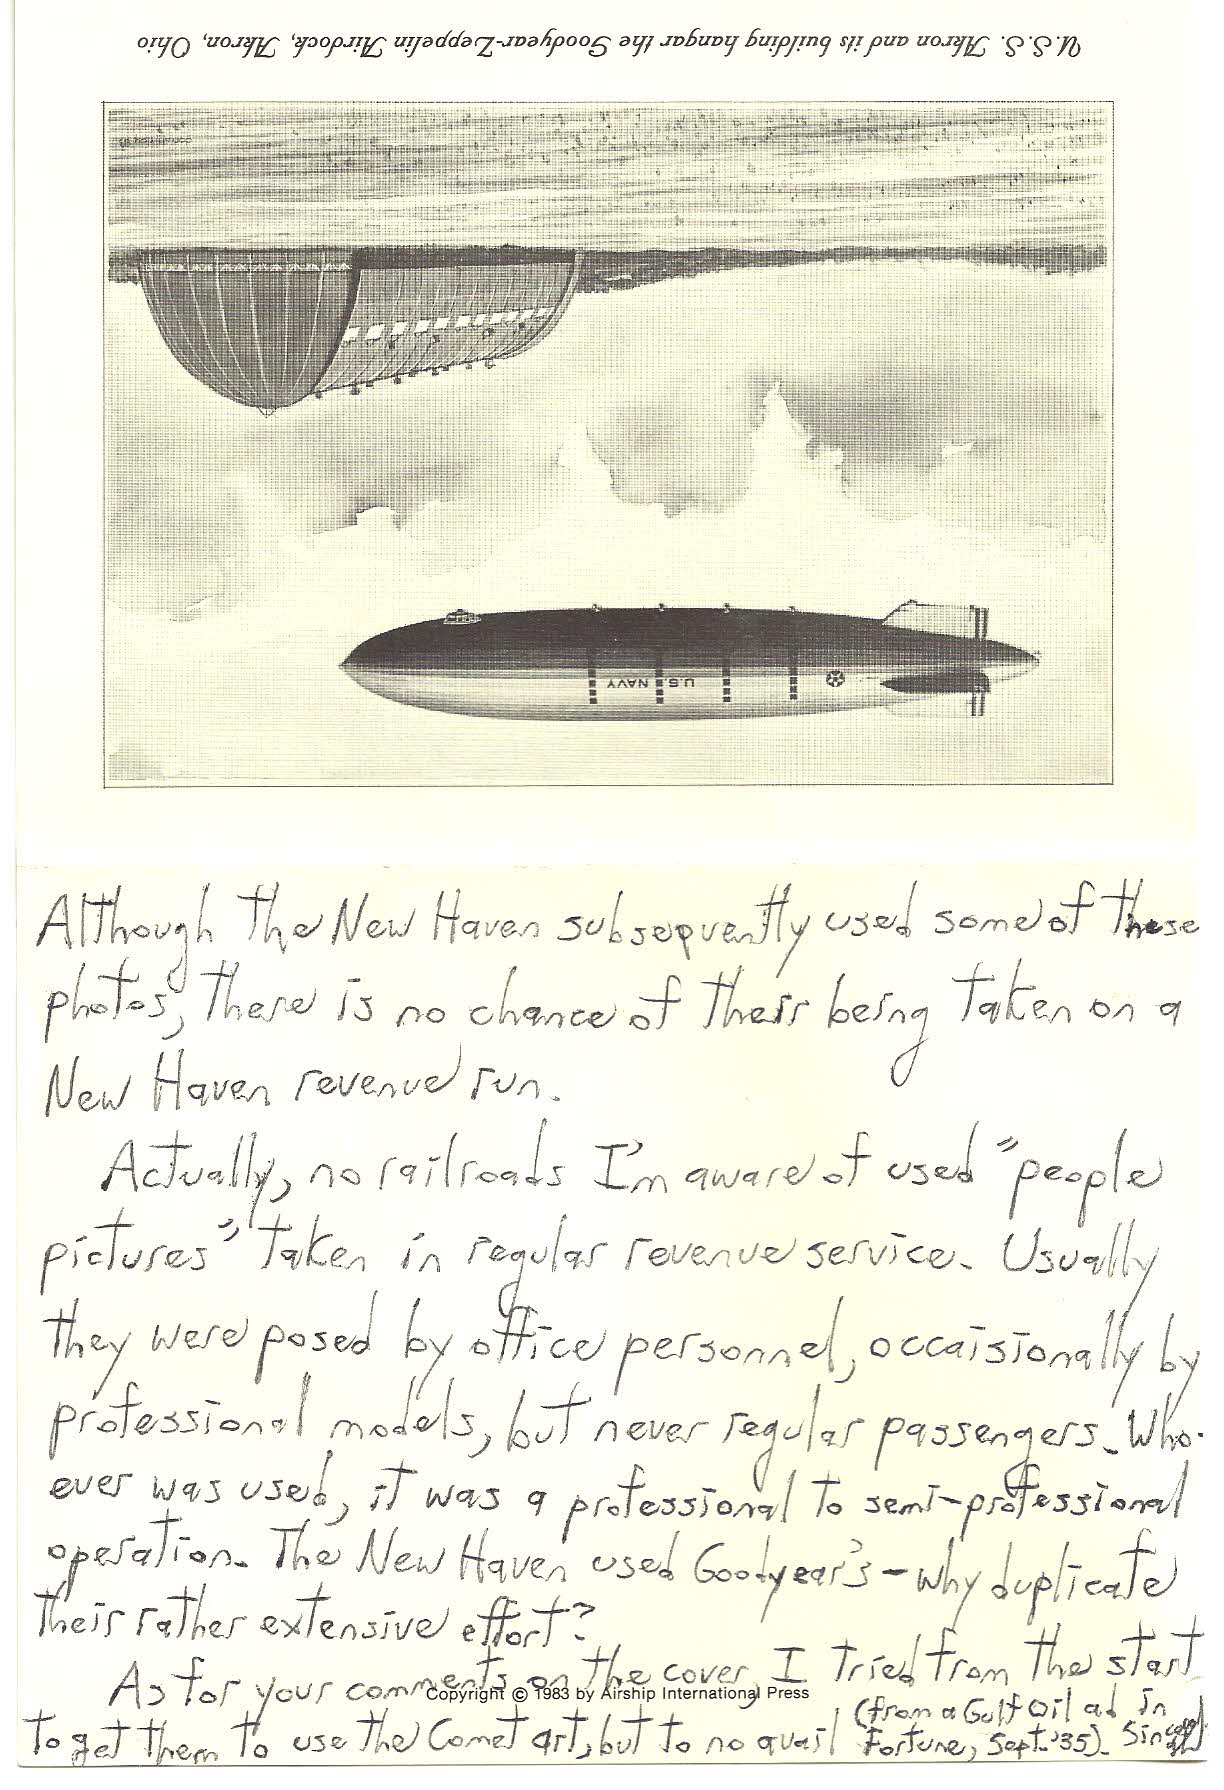 U.S.S. Akron and its building hangar the Goodyear-Zeppelin Airdock, Akron, Ohio
U.S. NAVY
Although the New Haven subsequently used some of these
photos, there is no chance of their being taken on a
New Haven revenue run.
Actually, no railroads I'm aware of used "people
pictures" taken in regular revenue service. Usually
they were posed by office personnel, occaisionally by
professional models, but never regular passengers. Who-
ever was used, it was a professional to semi-professional
operation. The New Haven used Goodyear's - why duplicate
their rather extensive effort?
As for your comments on the cover, I tried from the start
Copyright © 1983 by Airship International Press
to get them to use the Comet art, but to no avail (from a Gulf Oil ad in
Fortune, Sept. '35).